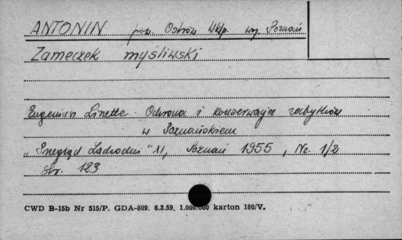 ANTONIN pow. Ostrów Wlkp. woj. Poznań
Zameczek myśliwski
Eugeniusz Linette - Ochrona i konserwacja zabytków
w Poznańskiem
"Przegląd Zachodni" XI, Poznań 1955, Nr. 1/2
str. 123
CWD B-15b Nr 515/P. GDA-809. 6.3.59. 1.000.000 karton 180/V.